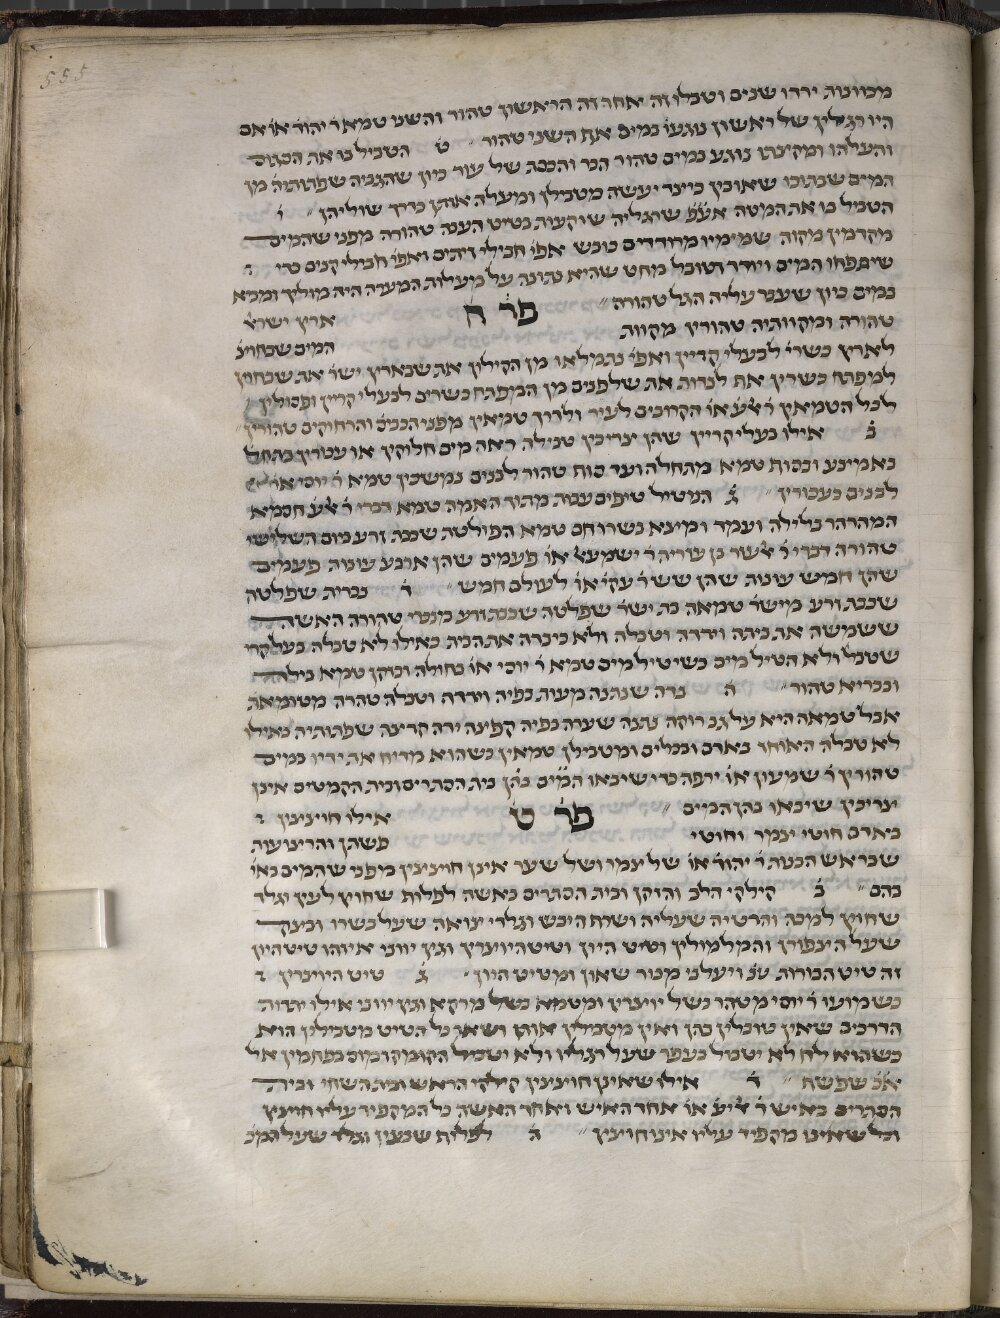 555
מכוונות ירדו שנים וטבלו זה אחר זה הראשון טהור והשני טמא ר׳ יהוד׳ או׳ אם
היו רגליו של ראשון נוגעו׳ במים אף השני טהור ׳׳ ט הטביל בו את הסגוס
והעלהו ומקצתו נוגע במים טהור הכר והכסת של עור כיון שהגביה שפתותיה מן
המים שבתוכו שאובין כיצד יעשה מטבילן ומעלה אותן כדרך שוליהן ׳׳ י
הטביל בו את המטה אע׳פ׳ שרגליה שוקעות בטיט העבה טהורה מפני שהמים
מקדמין מקוה שמימיו מרודדים כובש אפי׳ חבילי עצים ואפי׳ חבילי קנים כדי
שיתפחו המים ויורד וטובל מחט שהיא נתונה על מעלות המערה היה מוליך ומביא
במים כיון שעבר עליה הגל טהורה ׳׳ פר׳ ח ארץ ישר׳
טהורה ומקוותיה טהורין מקוות המים שבחוצ׳
לארץ כשרי׳ לבעלי קריין ואפי׳ נתמלאו מן הקילון את שבארץ ישר׳ את שבחוץ
למפתח כשרין אף לנדות את שלפנים מן המפתח כשרים לבעלי קריין ופסולין
לכל הטמאין ר׳ אליע׳ או׳ הקרובים לעיר ולדרך טמאין מפני הכביס׳ והרחוקים טהורין
ב אילו בעלי קריין שהן צריכין טבילה ראה מים חלוקין או עכורין בתחלה
באמצע ובסוף טמא מתחלה ועד סוף טהור לבנים נמשכין טמא ר׳ יוסי או׳
לבנים כעכורין ׳׳ ג המטיל טיפים עבות מתוך האמה טמא דברי ר׳ אלע׳ חסמא
המהרהר בלילה ועמד ומצא בשרו חם טמא הפולטה שכבת זרע ביום השלישי
טהורה דברי ר׳ אלעזר בן עזריה ר׳ ישמעאל או׳ פעמים שהן ארבע עונות פעמים
שהן חמש עונות שהן שש ר׳ עקי׳ או׳ לעולם חמש ׳׳ ד נכרית שפלטה
שכבת זרע מישר׳ טמאה בת ישר׳ שפלטה שכבת זרע מנכרי טהורה האשה
ששמשה את ביתה וירדה וטבלה ולא כיבדה את הבית כאילו לא טבלה בעל קרי
שטבל ולא הטיל מים כשיטיל מים טמא ר׳ יוסי או׳ בחולה ובזקן טמא בילד
ובבריא טהור ׳׳ ה נדה שנתנה מעות בפיה וירדה וטבלה טהרה מטומאת׳
אבל טמאה היא על גב רוקה נתנה שערה בפיה קפצה ידה קרצה שפתותיה כאילו
לא טבלה האוחז באדם ובכלים ומטבילן טמאין כשהוא מדיח את ידיו במים
טהורין ר׳ שמעון או׳ ירפה כדי שיבאו המים בהן בית הסתרים ובית הקמטים אינן
צריכין שיבאו בהן המים ׳׳ פר׳ ט אילו חוצצין ב
באדם חוטי צמר וחוטי פשתן והרצועות
שבראש הבנות ר׳ יהוד׳ או׳ של צמר ושל שער אינן חוצצין מפני שהמים באי׳
בהם ׳׳ ב קילקי הלב והזקן ובית הסתרים באשה לפלוף שחוץ לעין וגלד
שחוץ למכה והרטיה שעליה ושרף היבש וגלדי צואה שעל בשרו ובצק
שעל הציפורן והמלמולין וטיט היון וטיט היוצרין וגץ יווני איזהו טיט היון
זה טיט הבורות שנ׳ ויעלני מבור שאון ומטיט היון ׳׳ ג טיט היוצרין ב
כשמועו ר׳ יוסי מטהר בשל יוצרין ומטמא בשל מרקא וגץ יווני אילו יתדות
הדרכים שאין טובלין בהן ואין מטבילין אותן ושאר כל הטיט מטבילין הוא
כשהוא לח לא יטביל בעפר שעל רגליו ולא יטביל הקומקומוס בפחמין אל
אכ׳ שפשף ׳׳ ד אילו שאינן חוצצין קילקי הראש ובית השחי ובית
הסתרים באיש ר׳ אליע׳ או׳ אחד האיש ואחד האשה כל המקפיד עליו חוצץ
וכל שאינו מקפיד עליו אינו חוצץ ׳׳ ה לפלוף שבעין וגלד שעל המכ׳